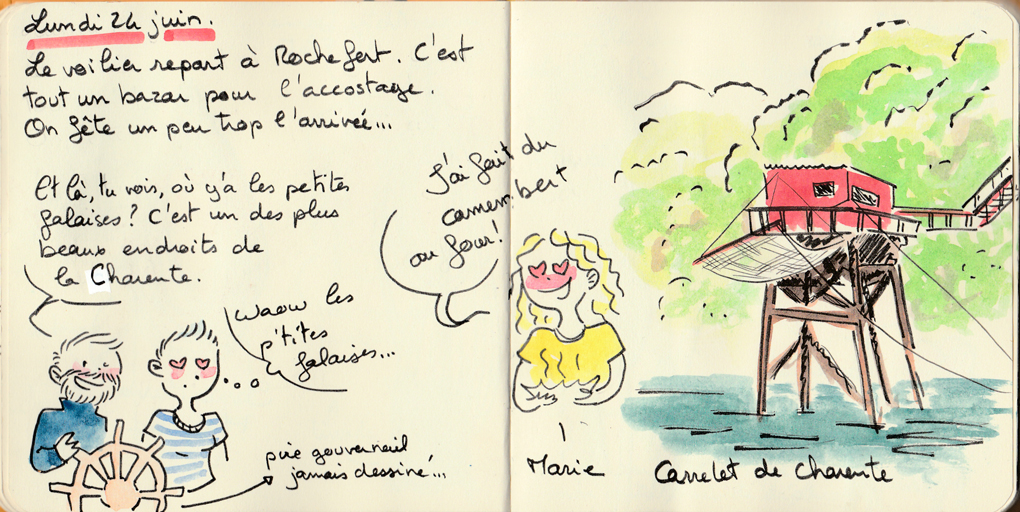 Lundi 24 juin.
Le voilier repart à Rochefort. C'est
tout un bazar pour l'accostage.
On fête un peu trop l'arrivée...
Et là, tu vois, où y'a les petites
falaises ? C'est un des plus
beaux endroits de
la Charente.
Waow les
p'tites
falaises...
pire gouvernail
jamais dessiné...
J'ai fait du
camembert
au four!
Marie
Carrelet de Charente